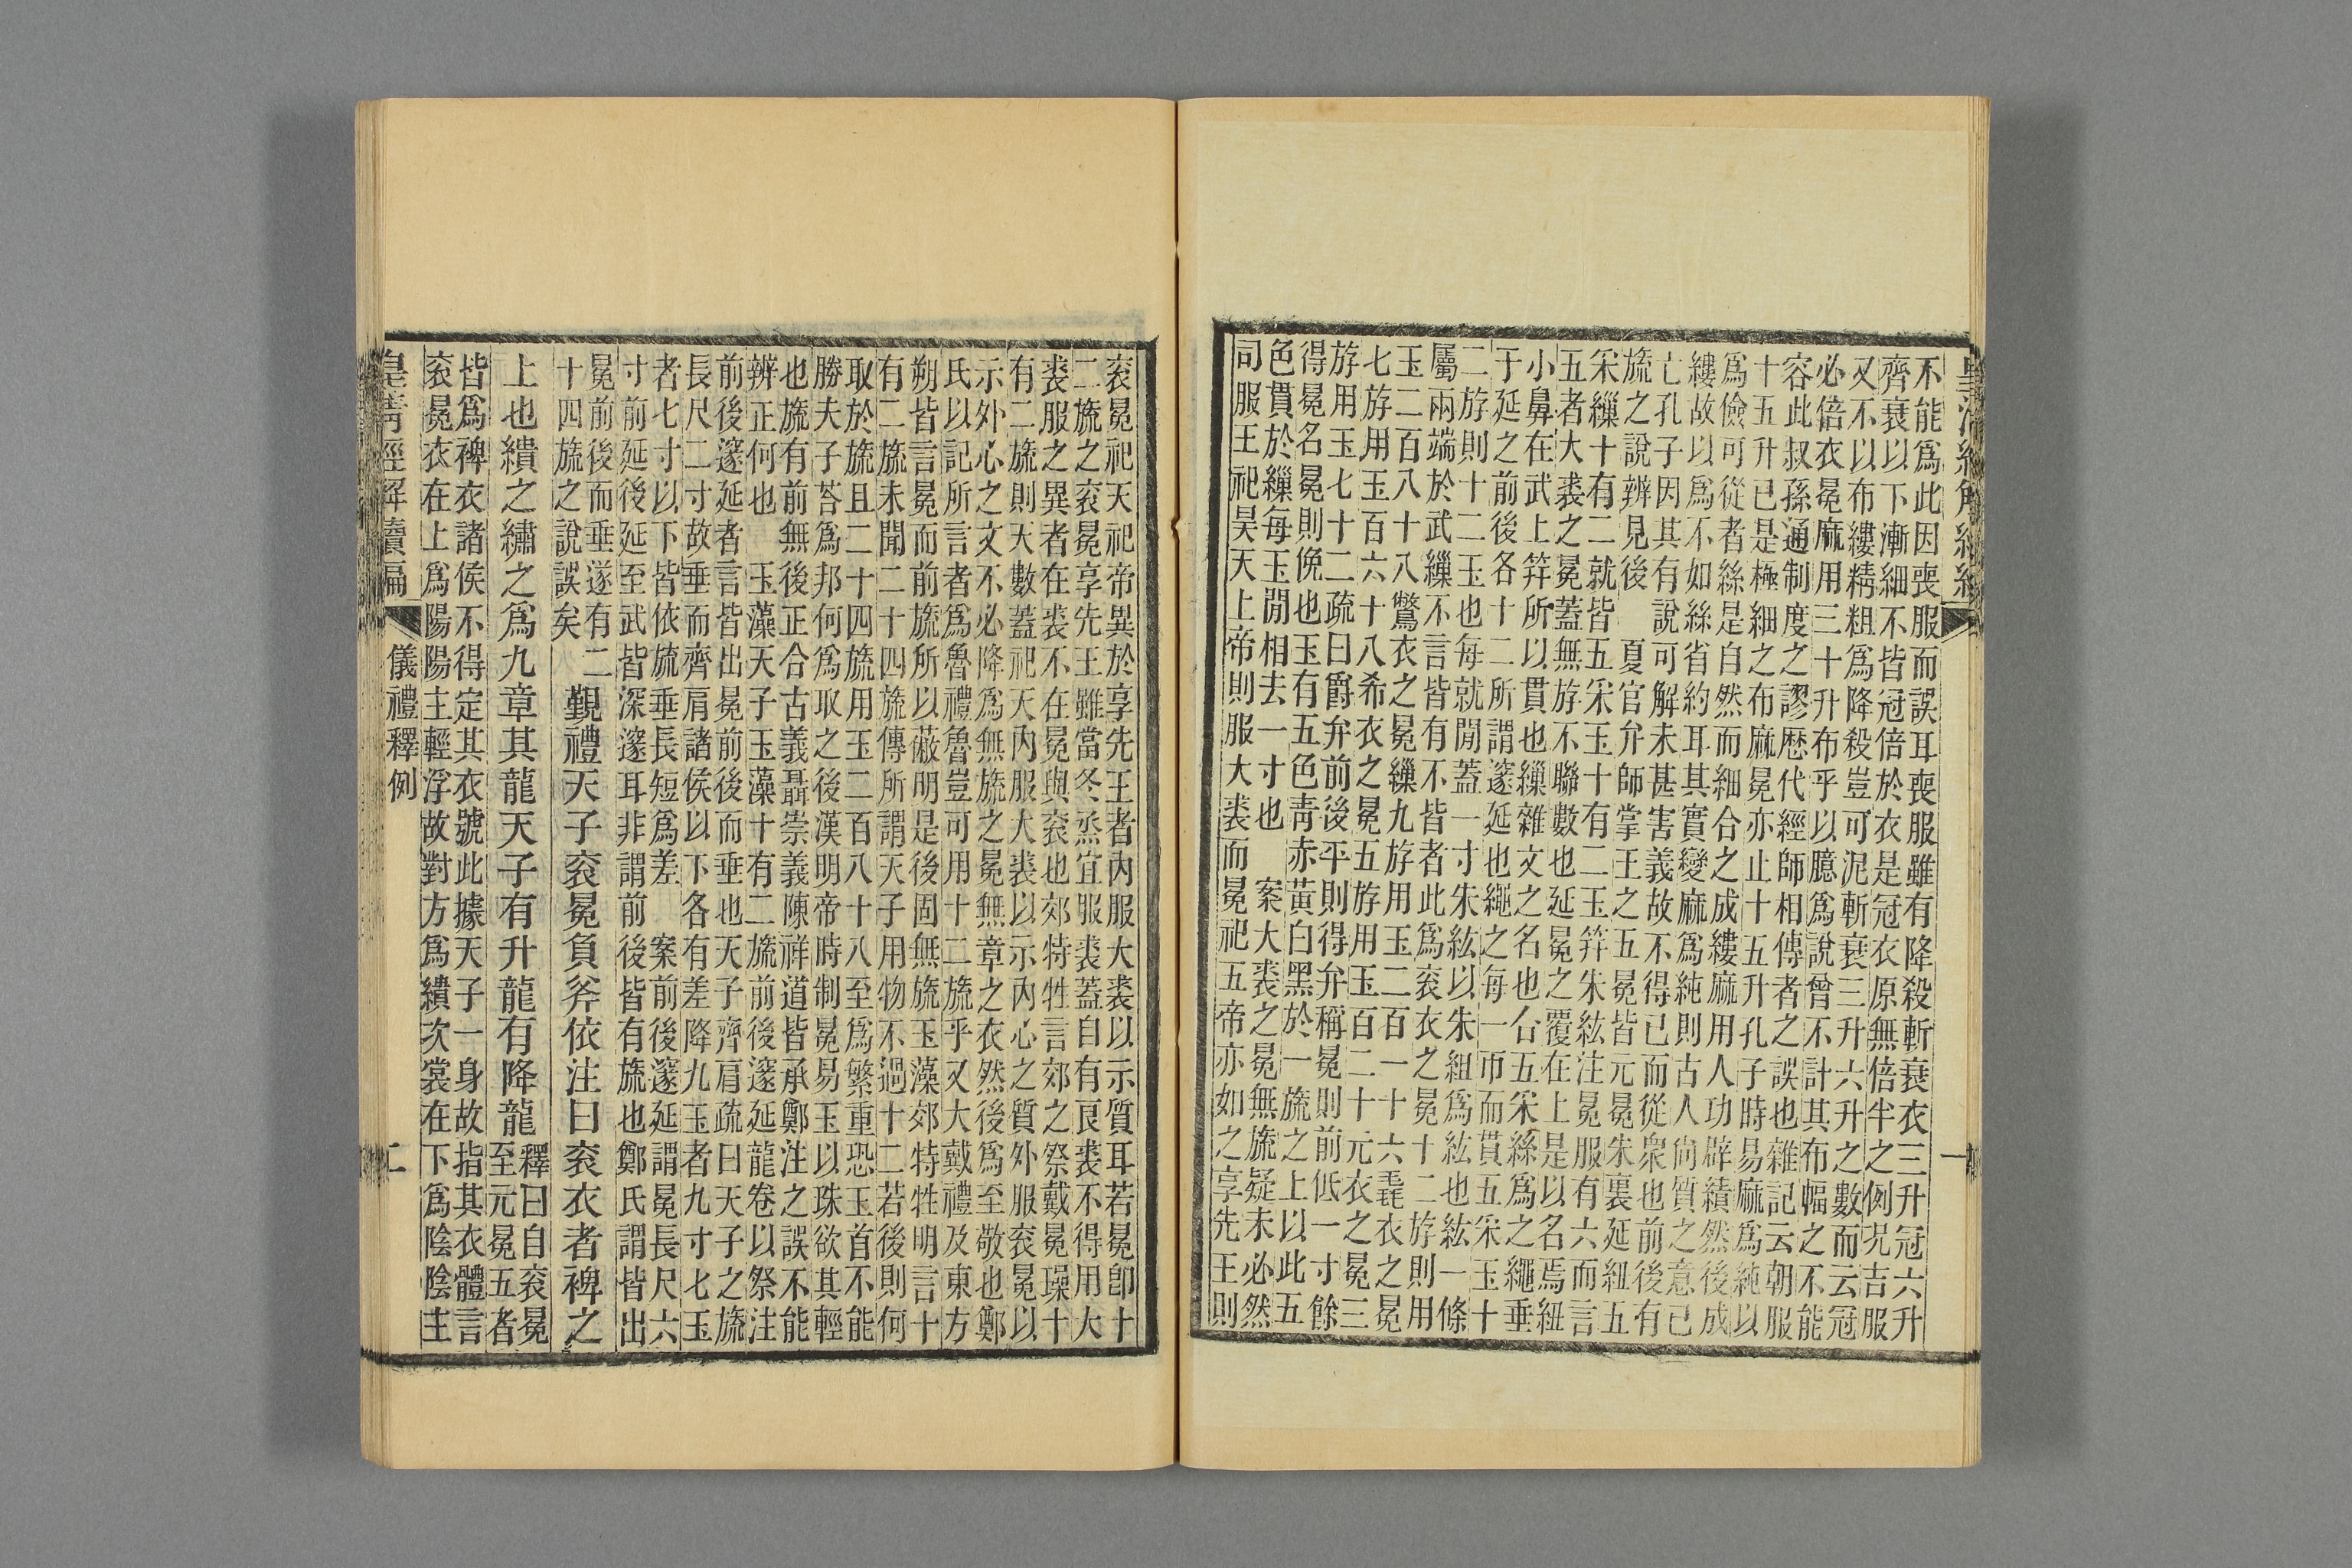 不能爲此因喪服而誤耳喪服雖有降殺斬衰衣三升冠六升
齊衰以下漸細不皆冠倍於衣是冠衣原無倍半之例況吉服
又不以布縷精粗爲降殺豈可泥斬衰三升六升之數而云冠
必倍衣冕麻用三十升布乎以臆爲說曾不計其布幅之不能
容此叔孫通制度之謬歷代經師相傳者之誤也雜記云朝服
十五升已是極細之布麻冕亦止十五升孔子時易麻爲純以
爲儉可從者絲是自然而細合之成縷麻用人功辟績然後成
縷故以爲不如絲省約耳其實變麻爲純則古人尙質之意已
亡孔子因其有說可解未甚害義故不得已而從衆也前後有
旒之說辨見後 夏官弁師掌王之五冕皆元冕朱裏延紐五
采繅十有二就皆五采玉十有二玉笄朱紘注冕服有六而言
五者大裘之冕蓋無斿不聯數也延冕之覆在上是以名焉紐
小鼻在武上笄所以貫也繅雜文之名也合五采絲爲之繩垂
于延之前後各十二所謂邃延也繩之每一帀而貫五采玉十
二斿則十二玉也每就閒蓋一寸朱紘以朱組爲紘也紘一條
屬兩端於武繅不言皆有不皆者此爲衮衣之冕十二斿則用
玉二百八十八鷩衣之冕繅九斿用玉二百一十六毳衣之冕
七斿用玉百六十八希衣之冕五斿用玉百二十元衣之冕三
斿用玉七十二疏曰爵弁前後平則得弁稱冕則前低一寸餘
得冕名冕則俛也玉有五色靑赤黃白黑於一旒之上以此五
色貫於繅每玉閒相去一寸也 案大裘之冕無旒疑未必然
司服王祀昊天上帝則服大裘而冕祀五帝亦如之享先王則
一
衮冕祀天祀帝異於享先王者內服大裘以示質耳若冕卽十
二旒之衮冕享先王雖當冬烝宜服裘蓋自有良裘不得用大
裘服之異者在裘不在冕與衮也郊特牲言郊之祭戴冕璪十
有二旒則天數蓋祀天內服大裘以示內心之質外服衮冕以
示外心之文不必降爲無旒之冕無章之衣然後爲至敬也鄭
氏以記所言者爲魯禮魯豈可用十二旒乎又大戴禮及東方
朔皆言冕而前旒所以蔽明是後固無旒玉藻郊特牲明言十
有二旒未聞二十四旒傳所謂天子用物不過十二若後則何
取於旒且二十四旒用玉二百八十八至爲繁重恐玉首不能
勝夫子荅爲邦何爲取之後漢明帝時制冕易玉以珠欲其輕
也旒有前無後正合古義聶崇義陳祥道皆承鄭注之誤不能
辨正何也 玉藻天子玉藻十有二旒前後邃延龍卷以祭注
前後邃延者言皆出冕前後而垂也天子齊肩疏曰天子之旒
長尺二寸故垂而齊肩諸侯以下各有差降九玉者九寸七玉
者七寸以下皆依旒垂長短爲差 案前後邃延謂冕長尺六
寸前延後延至武皆深邃耳非謂前後皆有旒也鄭氏謂皆出
冕前後而垂遂有二
十四旒之說誤矣
覲禮天子衮冕負斧依注曰衮衣者裨之
上也繢之繡之爲九章其龍天子有升龍有降龍
釋曰自衮冕
至元冕五者
皆爲裨衣諸侯不得定其衣號此據天子一身故指其衣體言
衮冕衣在上爲陽陽主輕浮故對方爲繢次裳在下爲陰陰主
皇清經解續編 儀禮釋例 二